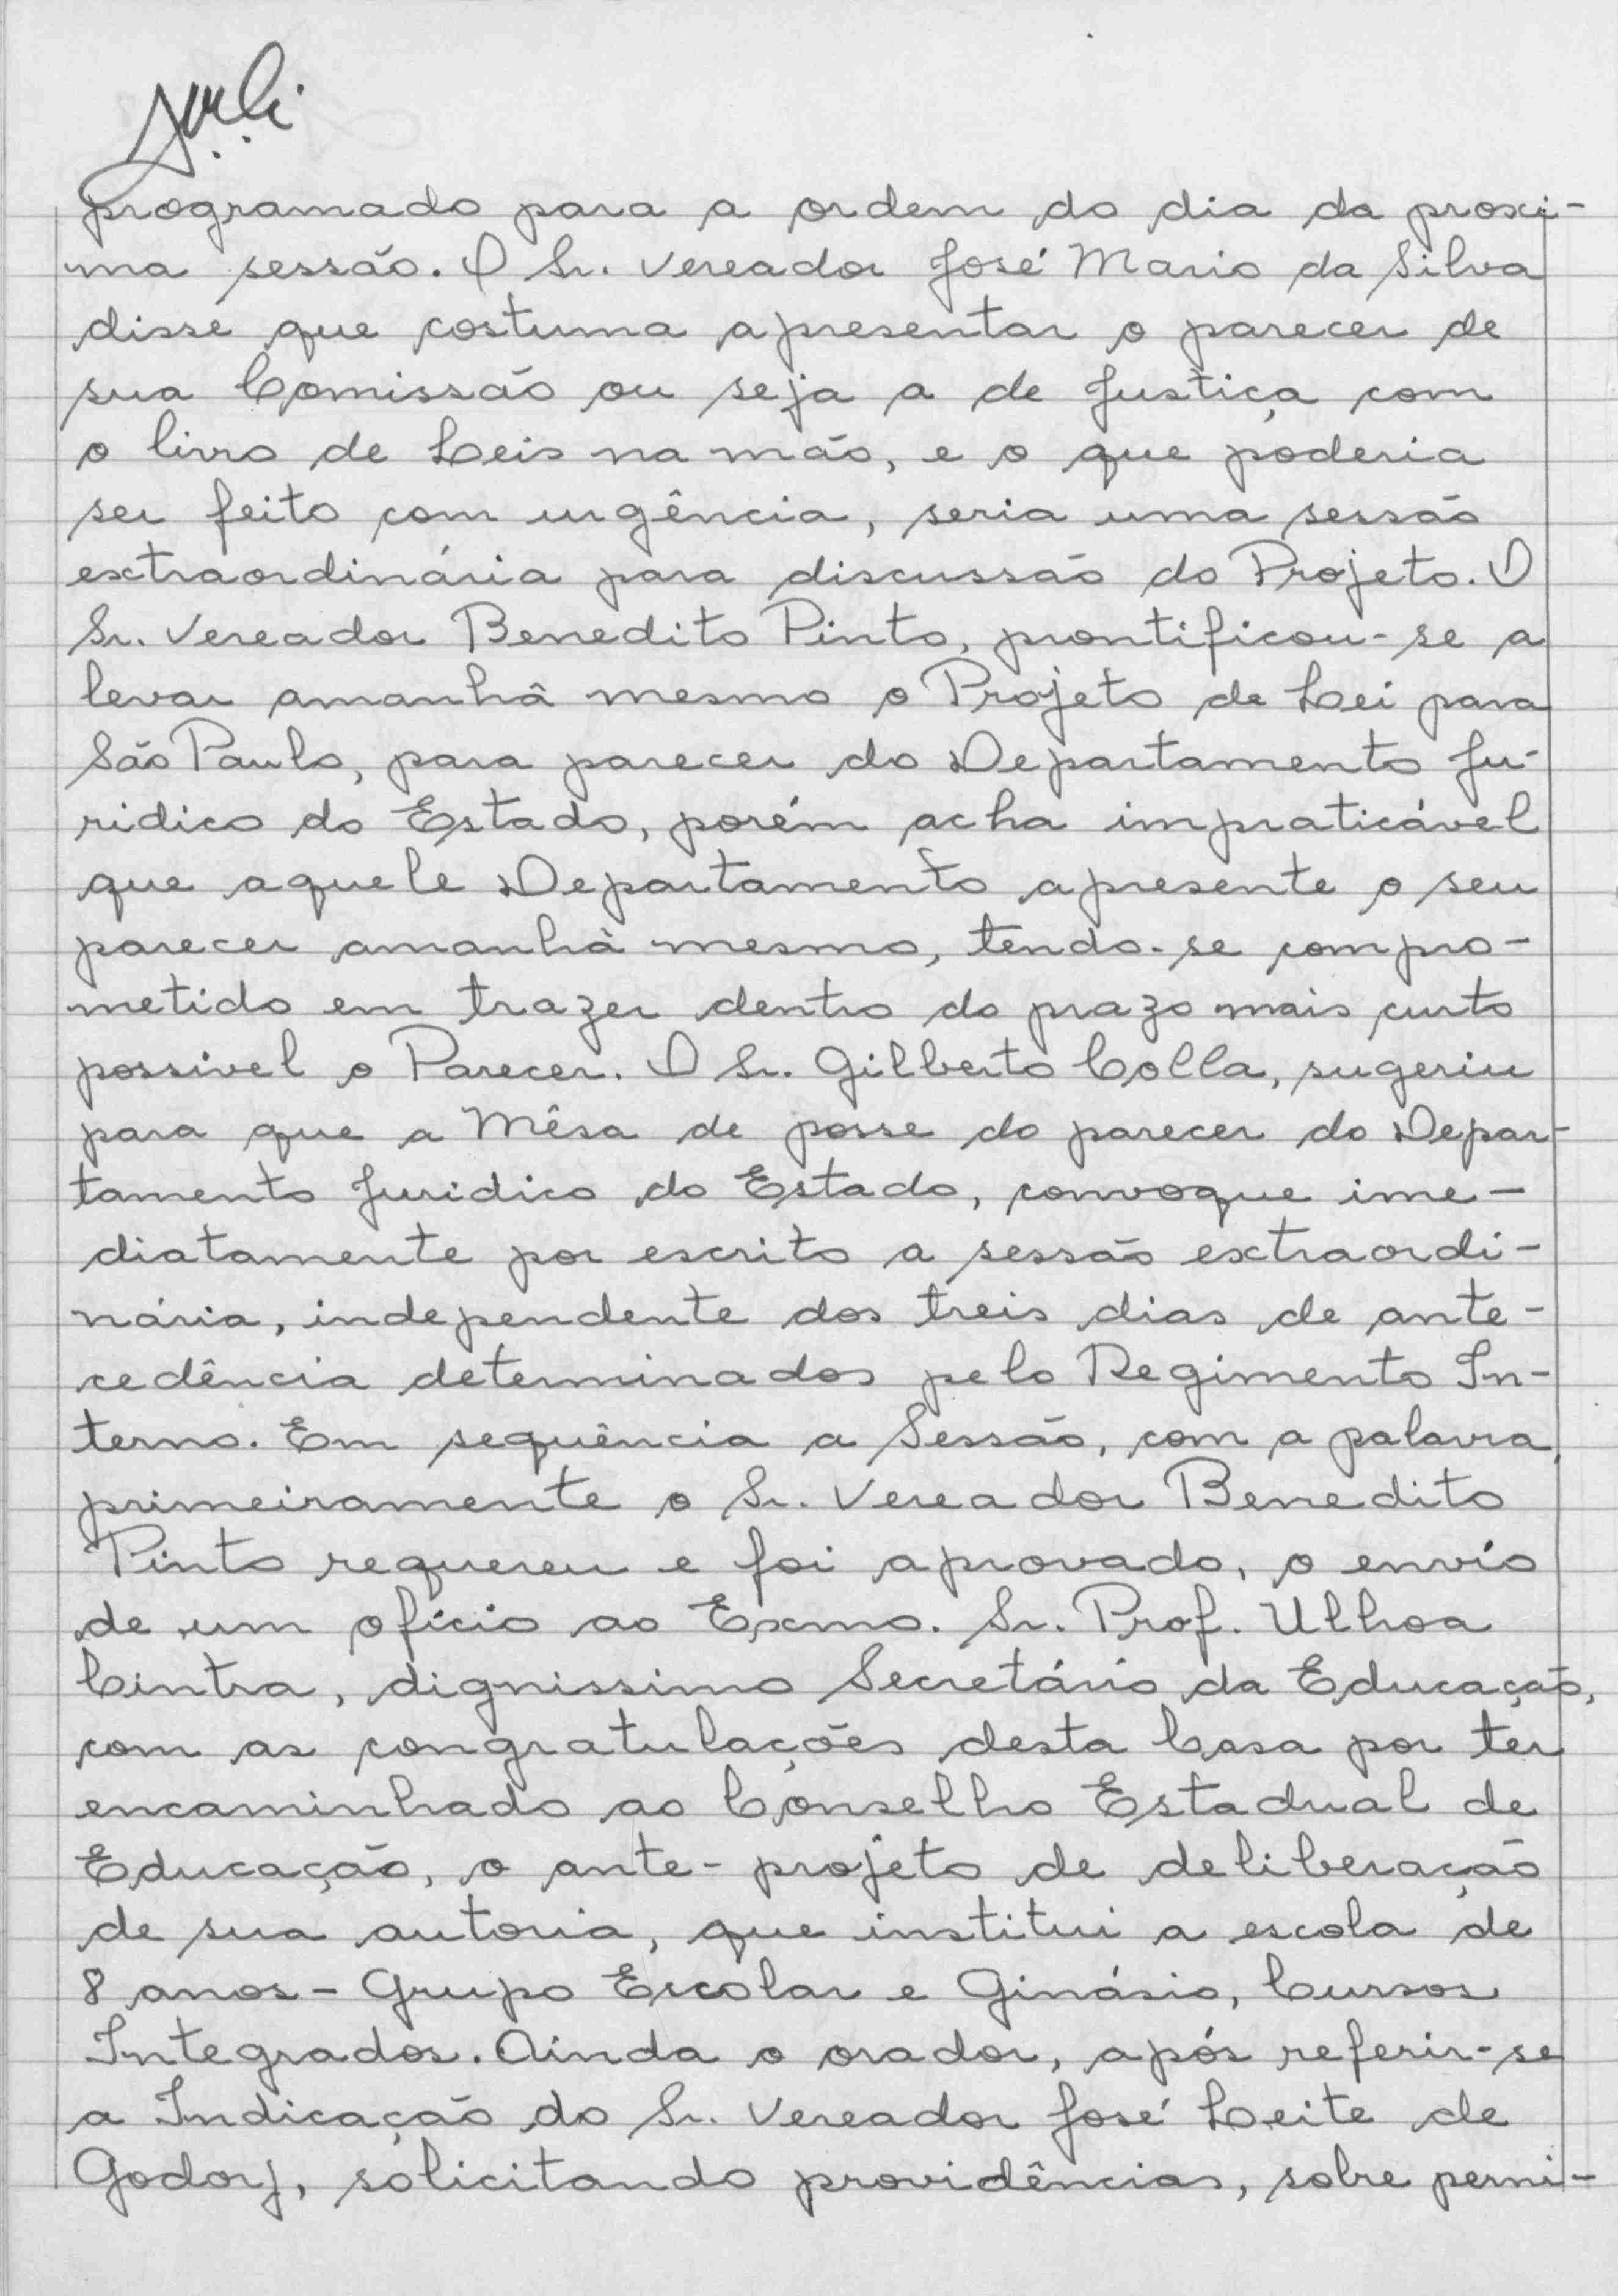 programado para a ordem do dia da proxi-
ma sessão. O Sr. Vereador José Mario da Silva
disse que costuma apresentar o parecer de
sua Comissão ou seja a de Justiça com
o livro de Leis na mão, e o que poderia
ser feito com urgência, seria uma sessão
extraordinária para discussão do Projeto. O
Sr. Vereador Benedito Pinto, prontificou-se a
levar amanhã mesmo o Projeto de Lei para
São Paulo, para parecer do Departamento Ju-
ridico do Estado, porém acha impraticável
que aquele Departamento apresente o seu
parecer amanhã mesmo, tendo-se compro-
metido em trazer dentro do prazo mais curto
possivel o Parecer. O Sr. Gilberto Colla, sugeriu
para que a Mêsa de posse do parecer do Depar-
tamento Juridico do Estado, convoque ime-
diatamente por escrito a sessão extraordi-
nária, independente dos treis dias de ante-
cedência determinados pelo Regimento In-
terno. Em sequência a Sessão, com a palavra,
primeiramente o Sr. Vereador Benedito
Pinto requereu e foi aprovado, o envio
de um ofício ao Exmo. Sr. Prof. Ulhoa
Cintra, dignissimo Secretário da Educação,
com as congratulações desta Casa por ter
encaminhado ao Conselho Estadual de
Educação, o ante-projeto de deliberação
de sua autoria, que institui a escola de
8 anos - Grupo Escolar e Ginásio, Cursos
Integrados. Ainda o orador, após referir-se
a Indicação do Sr. Vereador José Leite de
Godoy, solicitando providências, sobre perni-